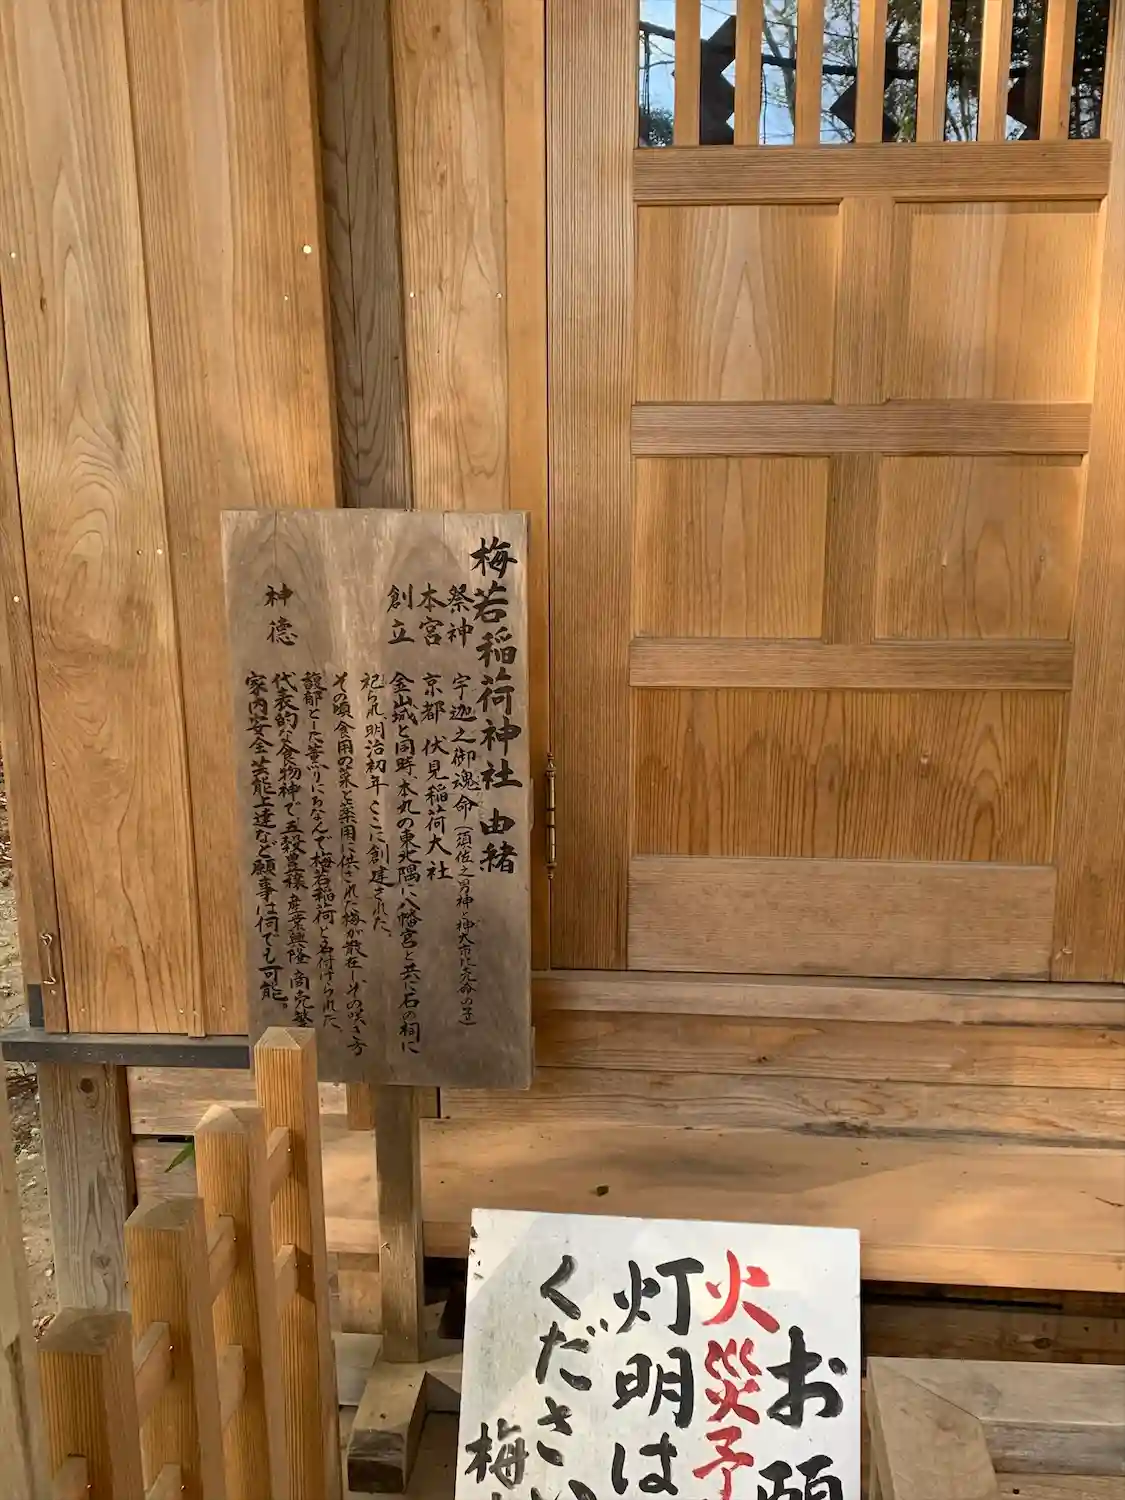 梅若稲荷神社 由緒
祭神 宇迦之御魂命(須佐之男神と神大市比売命の子)
本宮 京都 伏見稲荷大社
創立 金山城と同時、本丸の東北隅に八幡宮と共に石の祠に
祀られ、明治初年ここに創建された。
その頃食用の菜と薬用に供された梅が散在し、その咲き方
馥郁とした薫りにちなんで梅若稲荷と名付けられた、
神徳 代表的な食物神で、五穀豊穣 産業興隆 商売繁
家内安全 芸能上達など願事は何でも可能。
お願
火災予
灯明は
ください
梅